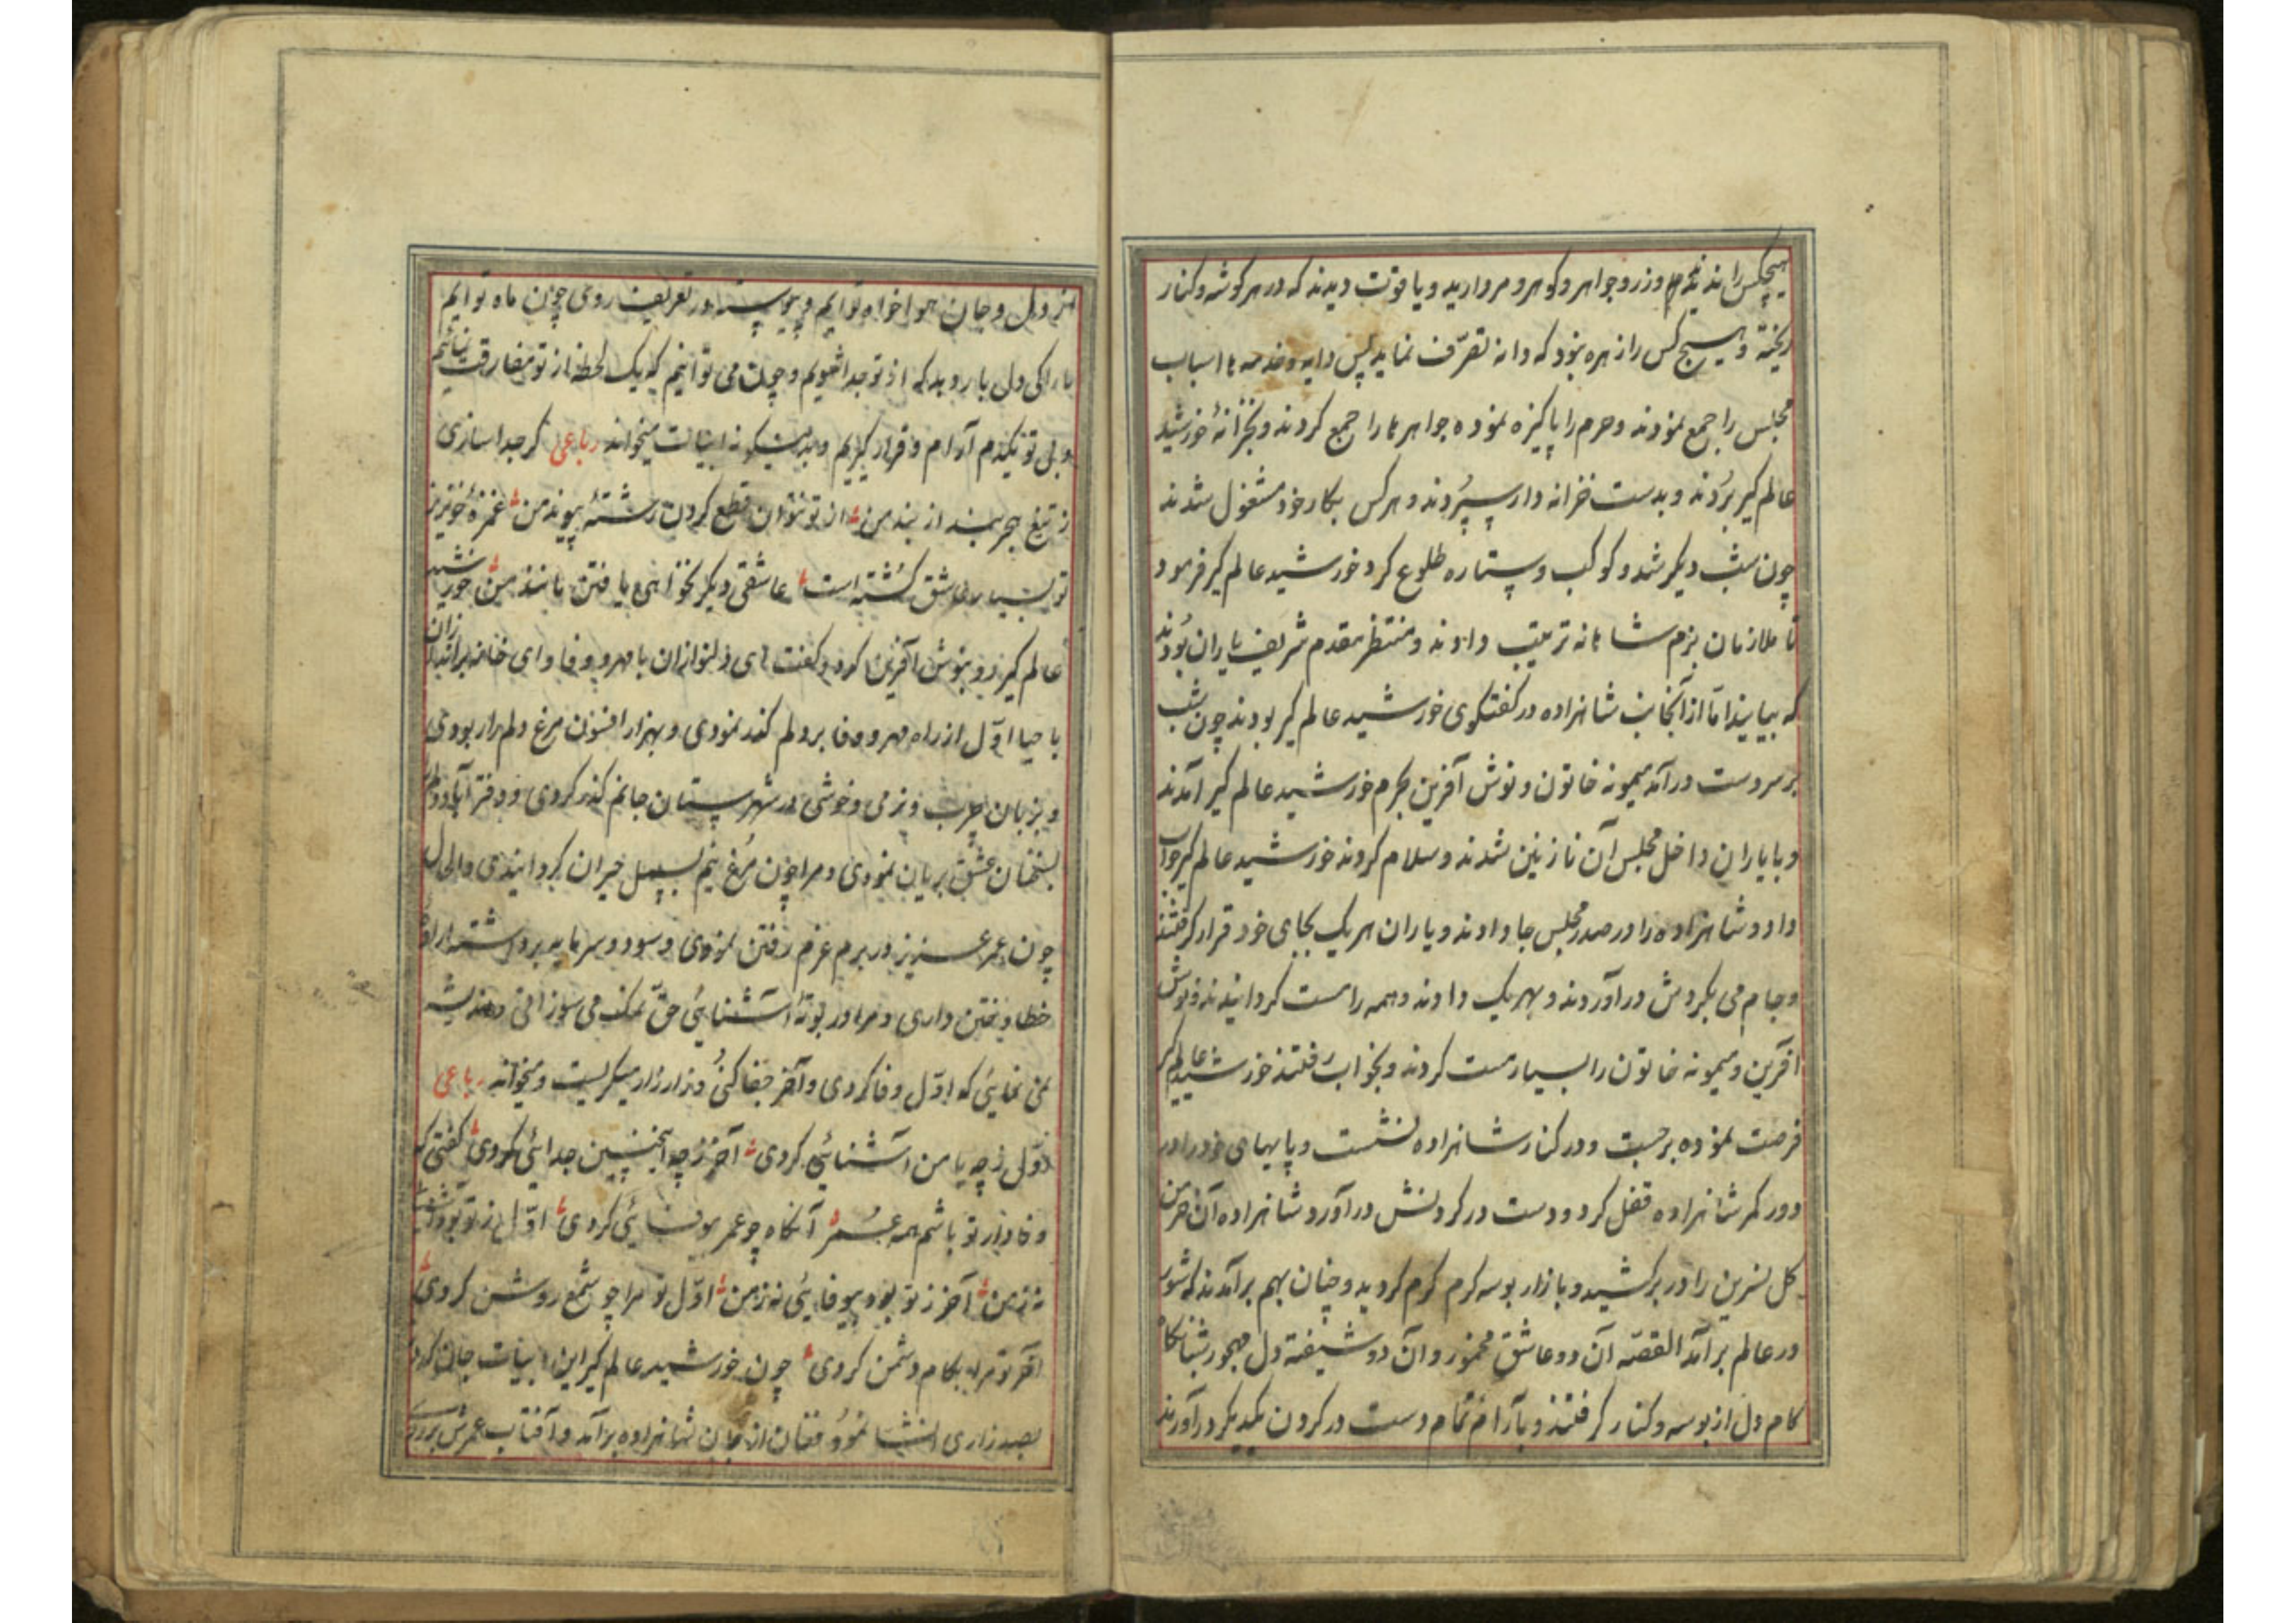 هیچکس را ندیدند و زر و جواهر و کوهر و مروارید و یاقوت دیدند که در هر کوشه و کنار
ریخته و هیچ کس را زهره نبود که دانه تصرّف نماید پس دایه و خدمه ها اسباب
مجلس را جمع نمودند و حرم را پاکیزه نموده جواهرها را جمع کردند و بخزانهٔ خورشید
عالم کیر بُردند و بدست خزانه دار سپُردند و هر کس بکار خود مشغول شدند
چون شب دیکر شد و کوکب و ستاره طلوع کرد خورشید عالم کیر فرمود
تا ملازمان بزم شاهانه ترتیب دادند و منتظر مقدم شریف یاران بُودند
که بیایند امّا از آنجانب شاهزاده در کفتکوی خورشید عالم کیر بودند چون شب
بر سر دست درآمد میمونه خاتون و نوش آفرین بحرم خورشید عالم کیر آمدند
و با یاران داخل مجلس آن نازنین شدند و سلام کردند خورشید عالم کیر جواب
داد و شاهزاده را در صدر مجلس جا دادند و یاران هر یک بجای خود قرار کرفتند
و جام می بکردش درآوردند و بهر یک دادند و همه را مست کردانیدند و نوش
آفرین و میمونه خاتون را بسیار مست کردند و بخواب رفتند خورشید عالم کیر
فرصت نموده برجست و در کنار شاهزاده نشست و پایهای خود را در
دور کمر شاهزاده قفل کرد و دست در کردنش درآورد و شاهزاده آن خرمن
کل نسرین را در برکشید و بازار بوسه کرم کرم کردید و چنان بهم برآمدند که شور
در عالم برآمد القصّه آن دو عاشق مخمور و آن دو شیفته دل مهجور
کام دل از بوسه و کنار کرفتند و بآرام تمام دست در کردن یکدیکر درآوردند
از دل و جان هوا خواه توایم و پیوسته در تعریف روی چون ماه توایم
ما را کی دل بار و بد که از تو جدا شویم و چون می توانیم که یک لحظه از تو مفارقت نمائیم
و بی تو یکدم آرام و قرار کیریم و بدینکونه ابیات میخواند رباعی کر جدا سازی
ز تیغ هجر بند از بند من از تو نتوان قطع کردن رشتهٔ پیوند من غمزهٔ خونریز
تو بسیار عاشق کُشته است عاشقی دیکر نخواهی یافتن مانند من خورشید
عالم کیر رو بنوش آفرین کرد و کفت ای دلنوازان با مهر و وفا و ای خانه براندازان
با حیا اوّل از راه مهر و وفا بر دلم کمند نمودی و بهزار افسون مرغ دلم را ربودی
و بزبان چرب و نرمی و خوشی در شهرستان جانم کذر کردی و دفتر
بسخنان عشق بریان نمودی و مرا چون مُرغ نیم بسمل حیران کردانیدی و الحال
چون عمر عزیز در برم عزم رفتن نمودی و سود و سرمایه برداشته ارادهٔ
خطا و ختن داری و مرا در بوتهٔ آشنائی حقّ نمک می سوزانی و اندیشه
نمی نمائی که اوّل وفا کردی و آخر جفا کنی و زار زار میکریست و میخواند رباعی
اوّل ز چه با من آشنائی کردی آخر ز چه اینچنین جدائی کردی کفتی که
وفادار تو باشم همه عمر آنکاه چو عمر بیوفائی کردی اوّل ز تو بود
نه ز من آخر ز تو بود بیوفائی نه ز من اوّل تو مرا چو شمع روشن کردی
آخر تو مرا بکام دشمن کردی چون خورشید عالم کیر این ابیات
بصد زاری انشا نمود فغان از جان شاهزاده برآمد و آفتاب عمرش